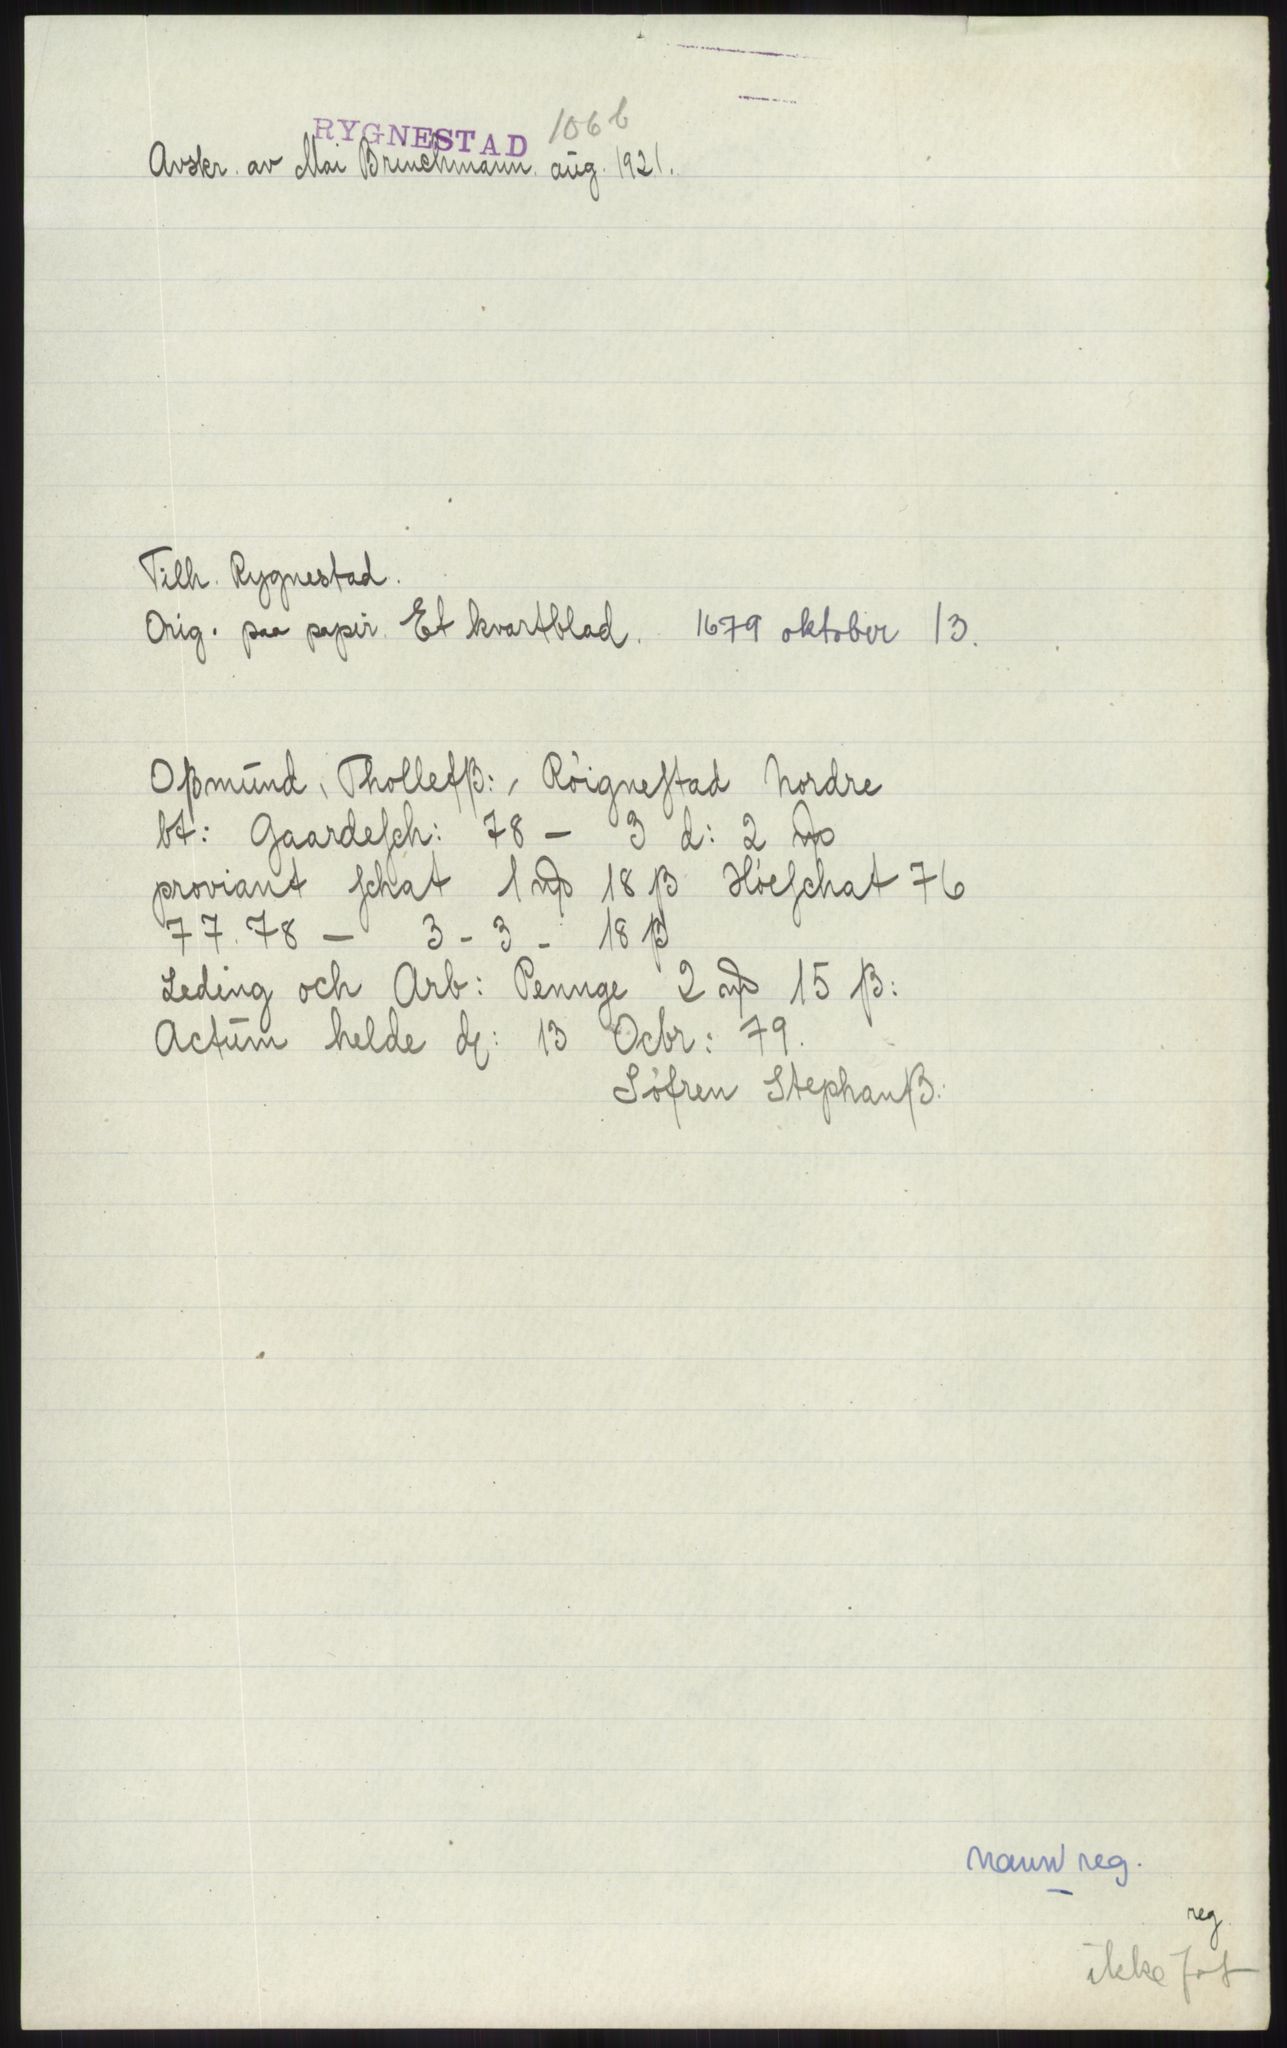 RYGNESTAD 106 b
Avskr. av Mai Bruchmann. aug. 1921.
Tilh. Rygnestad.
Orig. paa papir. Et kvartblad. 1679 oktober 13.
Oßmund, Thollefß:, Röigneſtad Nordre
bt: Gaardeſch: 78 - 3 d: 2
proviant ſchat 1 18 ß Höeſchat 76
77. 78 - 3 - 3 - 18 ß
Leding och Arb: Pennge 2 15 ß:
Actum helde d: 13 Ocbr: 79.
Söfren Stephanß:
Navn reg.
reg.
ikke fot